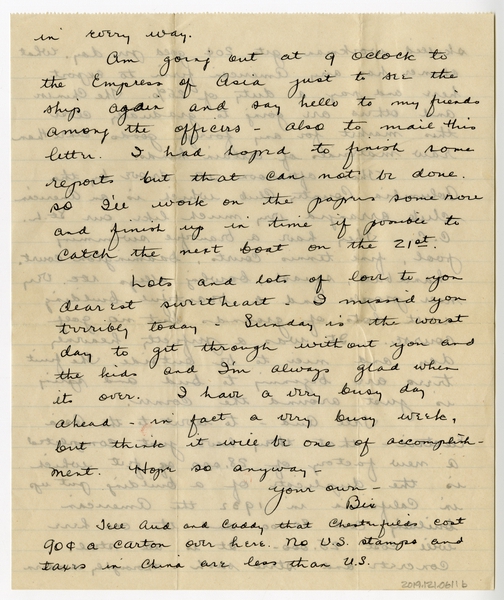 in every way.
Am going out at 9 oclock to
the Empress of Asia just to see the
ship again and say hello to my friends
among the officers - also to mail this
letter. I had hoped to finish some
reports but that can not be done.
So I'll work on the papers some more
and finish up in time if possible to
catch the next boat on the 21st.
Lots and lots of love to you
dearest sweetheart. I missed you
terribly today - Sunday is the worst
day to get through without you and
the kids and I'm always glad when
it's over. I have a very busy day
ahead - in fact a very busy week,
but think it will be one of accomplish-
ment. Hope so anyway -
Your own -
Bix
Tell Aud and Caddy that Chesterfields cost
90¢ a carton over here. No U.S. stamps and
taxes in China are less than U.S.
2019.121.0611 b